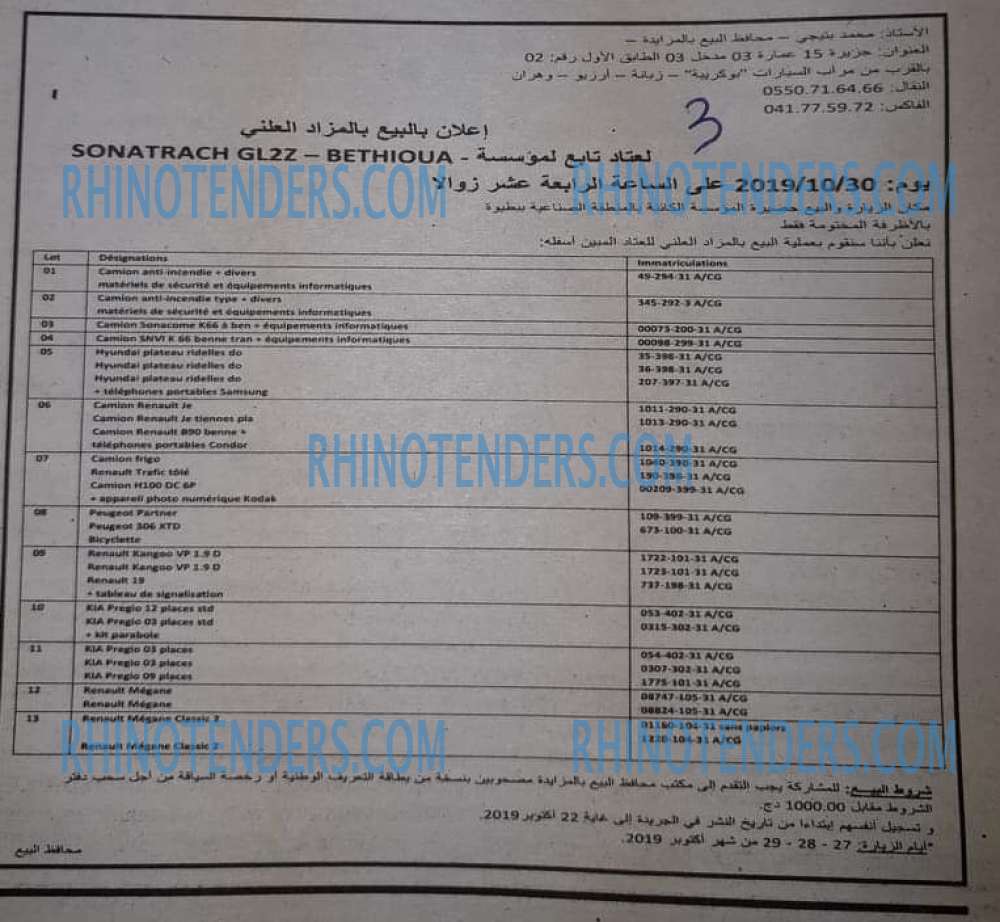 الأستاذ: محمد بتيجي – محافظ البيع بالمزايدة –
العنوان: جزيرة 15 عمارة 03 مدخل 03 الطابق الأول رقم: 02
بالقرب من مرآب السيارات "بوكريبة" – زبانة – أرزيو – وهران
النقال: 0550.71.64.66
الفاكس: 041.77.59.72
3
إعلان بالبيع بالمزاد العلني
لعتاد تابع لمؤسسة - SONATRACH GL2Z – BETHIOUA
RHINOTENDERS.COM RHINOTENDERS.COM
يوم: 2019/10/30 على الساعة الرابعة عشر زوالا
مكان الزيارة والبيع حضيرة المؤسسة الكائنة بالمنطقة الصناعية ببطيوة
بالأظرفة المختومة فقط
نعلن بأننا سنقوم بعملية البيع بالمزاد العلني للعتاد المبين أسفله:
Lot Désignations Immatriculations
01 Camion anti-incendie + divers 49-294-31 A/CG
matériels de sécurité et équipements informatiques
02 Camion anti-incendie type + divers 345-292-3 A/CG
matériels de sécurité et équipements informatiques
03 Camion Sonacome K66 à ben + équipements informatiques 00073-200-31 A/CG
04 Camion SNVI K 66 benne tran + équipements informatiques 00098-299-31 A/CG
05 Hyundai plateau ridelles do 35-398-31 A/CG
Hyundai plateau ridelles do 36-398-31 A/CG
Hyundai plateau ridelles do 207-397-31 A/CG
+ téléphones portables Samsung
06 Camion Renault Je 1011-290-31 A/CG
Camion Renault Je tiennes pla 1013-290-31 A/CG
Camion Renault B90 benne +
téléphones portables Condor 1014-290-31 A/CG
RHINOTENDERS.COM
07 Camion frigo 1040-390-31 A/CG
Renault Trafic tôlé 190-396-31 A/CG
Camion H100 DC 6P 00209-399-31 A/CG
+ appareil photo numérique Kodak
08 Peugeot Partner 109-399-31 A/CG
Peugeot 306 XTD 673-100-31 A/CG
Bicyclette
09 Renault Kangoo VP 1.9 D 1722-101-31 A/CG
Renault Kangoo VP 1.9 D 1723-101-31 A/CG
Renault 19 737-198-31 A/CG
+ tableau de signalisation
10 KIA Pregio 12 places std 053-402-31 A/CG
KIA Pregio 03 places std 0315-302-31 A/CG
+ kit parabole
11 KIA Pregio 03 places 054-402-31 A/CG
KIA Pregio 03 places 0307-302-31 A/CG
KIA Pregio 09 places 1775-101-31 A/CG
12 Renault Mégane 08747-105-31 A/CG
Renault Mégane 08824-105-31 A/CG
13 Renault Mégane Classic 2 01160-104-31 sans papiers
Renault Mégane Classic 2 1220-104-31 A/CG
RHINOTENDERS.COM RHINOTENDERS.COM
شروط البيع: للمشاركة يجب التقدم إلى مكتب محافظ البيع بالمزايدة مصحوبين بنسخة من بطاقة التعريف الوطنية أو رخصة السياقة من أجل سحب دفتر
الشروط مقابل 1000.00 دج.
و تسجيل أنفسهم إبتداءا من تاريخ النشر في الجريدة إلى غاية 22 أكتوبر 2019.
*أيام الزيارة: 27 - 28 - 29 من شهر أكتوبر 2019.
محافظ البيع